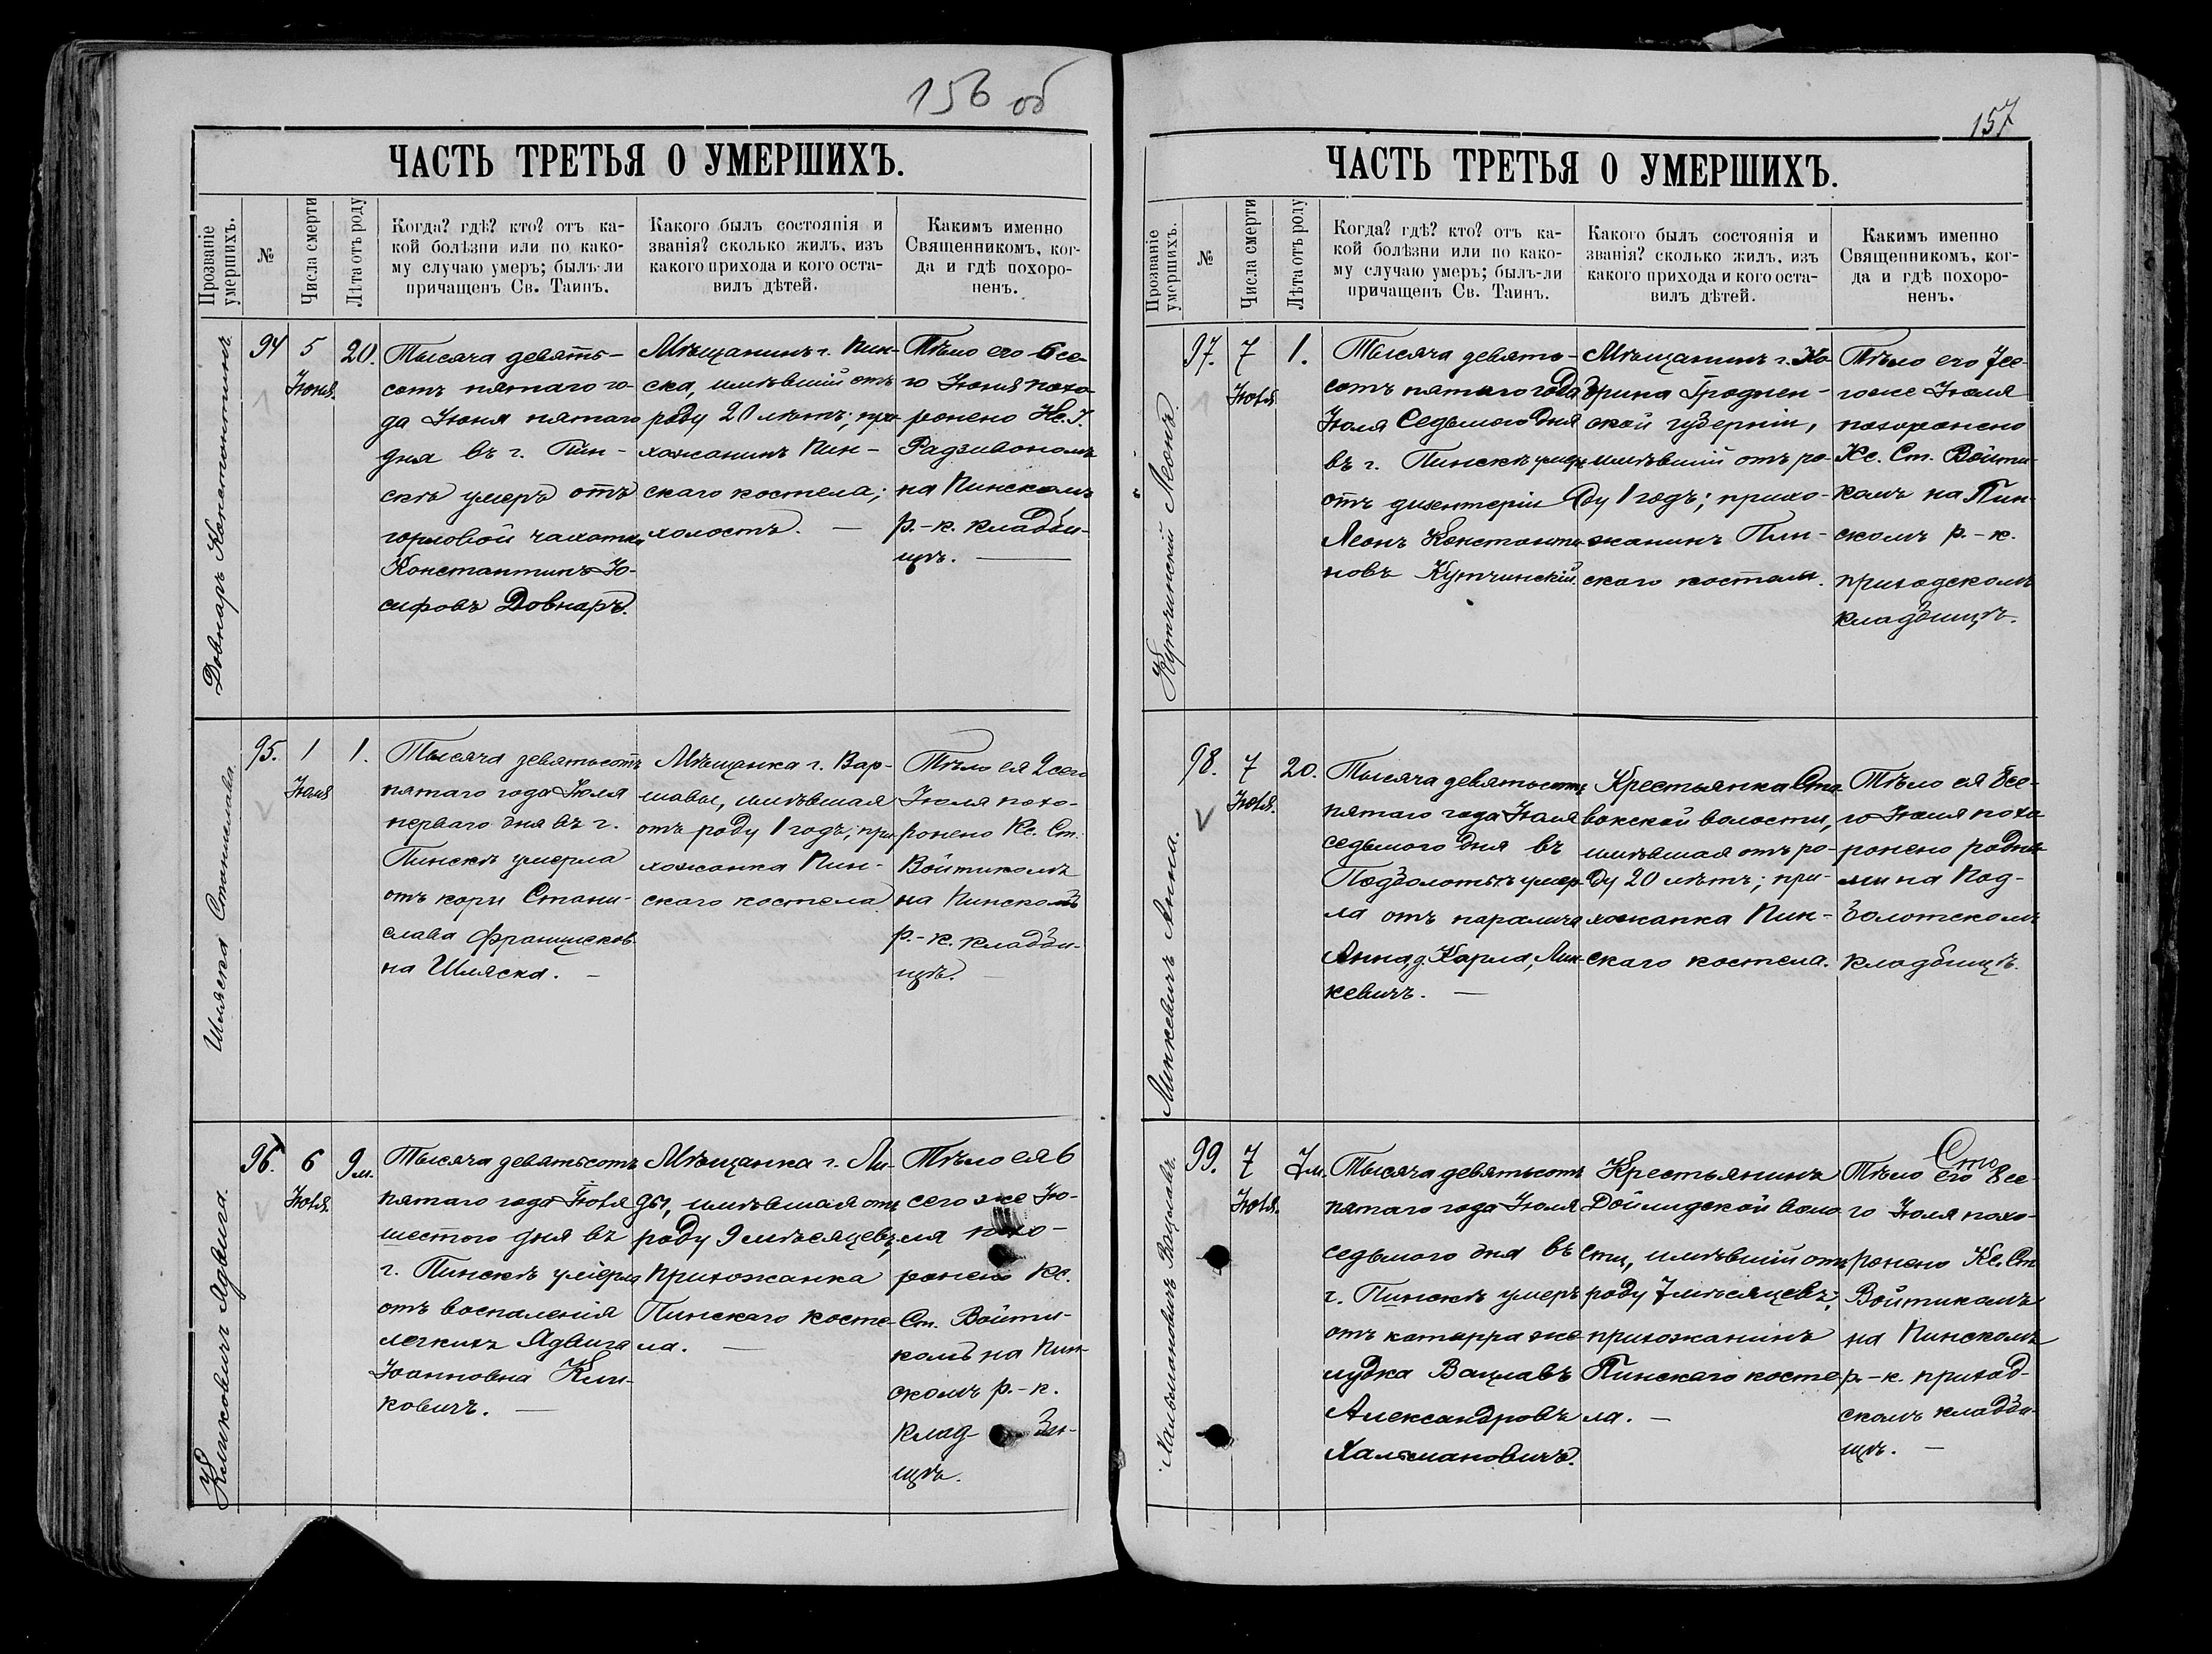 156 об
ЧАСТЬ ТРЕТЬЯ О УМЕРШИХЪ.
Прозваніе умершихъ.
№
Числа смерти
Лѣта отъ роду
Когда? гдѣ? кто? отъ ка-
кой болѣзни или по како-
му случаю умеръ; былъ-ли
причащенъ Св. Таинъ.
Какого былъ состоянія и
званія? сколько жилъ, изъ
какого прихода и кого оста-
вилъ дѣтей.
Какимъ именно
Священникомъ, ког-
да и гдѣ похоро-
ненъ.
Довнаръ Константинъ.
94
5
Іюня.
20.
Тысяча девять-
сотъ пятаго го-
да Іюня пятаго
дня въ г. Пин-
скѣ умеръ отъ
горловой чахотки
Константинъ Іо-
сифовъ Довнаръ.
Мѣщанинъ г. Пин-
ска, имѣвшій отъ
роду 20 лѣтъ; при-
хожанинъ Пин-
скаго костела;
холостъ. —
Тѣло его 6 се-
го Іюня похо-
ронено Кс. І.
Радзивономъ
на Пинскомъ
р.-к. кладби-
щѣ. —
Шляска Станислава.
95.
1
Іюля
1.
Тысяча девятьсотъ
пятаго года Іюля
перваго дня въ г.
Пинскѣ умерла
отъ кори Стани-
слава Францисков-
на Шляска. —
Мѣщанка г. Вар-
шавы, имѣвшая
отъ роду 1 годъ, при-
хожанка Пин-
скаго костела
Тѣло ея 2 сего
Іюля похо-
ронено Кс. Ст.
Войтикомъ
на Пинскомъ
р.-к. кладби-
щѣ. —
Климковичъ Ядвига.
96.
6
Іюля.
9 м.
Тысяча девятьсотъ
пятаго года Іюля
шестого дня въ
г. Пинскѣ умерла
отъ воспаленія
легкихъ Ядвига
Іоанновна Кли-
ковичъ. —
Мѣщанка г. Ли-
ды, имѣвшая отъ
роду 9 мѣсяцевъ,
прихожанка
Пинскаго косте-
ла. —
Тѣло ея 6
сего же Ію-
ля похо-
ронено Кс.
Ст. Войти-
комъ на Пин-
скомъ р.-к.
клад- би-
щѣ.
157
ЧАСТЬ ТРЕТЬЯ О УМЕРШИХЪ.
Прозваніе умершихъ.
№
Числа смерти
Лѣта отъ роду
Когда? гдѣ? кто? отъ ка-
кой болѣзни или по како-
му случаю умеръ; былъ-ли
причащенъ Св. Таинъ.
Какого былъ состоянія и
званія? сколько жилъ, изъ
какого прихода и кого оста-
вилъ дѣтей.
Какимъ именно
Священникомъ, ког-
да и гдѣ похоро-
ненъ.
Кутчинскій Леонъ.
97.
7
Іюля
1.
Тысяча девять-
сотъ пятаго года
Іюля Седьмого дня
въ г. Пинскѣ умеръ
отъ дизентеріи
Леонъ Константи-
новъ Кутчинскій.
Мѣщанинъ г. Ко-
брина Гроднен-
ской губерніи,
имѣвшій отъ ро-
ду 1 годъ; прихо-
жанинъ Пин-
скаго костела.
Тѣло его 7 се-
гоже Іюля
похоронено
Кс. Ст. Войти-
комъ на Пин-
скомъ р.-к.
приходскомъ
кладбищѣ.
Минкевичъ Анна.
98.
7
Іюля.
20.
Тысяча девятьсотъ
пятаго года Іюля
седьмого дня въ
Подболотьѣ умер-
ла отъ паралича
Анна, д. Карла, Мин-
кевичъ. —
Крестьянка Ста-
вокской волости,
имѣвшая отъ ро-
ду 20 лѣтъ; при-
хожанка Пин-
скаго костела.
Тѣло ея 8 се-
го Іюля похо-
ронено родны-
ми на Под-
болотскомъ
кладбищѣ.
Хальмановичъ Вацлавъ.
99.
7
Іюля.
7 м.
Тысяча девятьсотъ
пятаго года Іюля
седьмого дня въ
г. Пинскѣ умеръ
отъ катарра же-
лудка Вацлавъ
Александровъ
Хальмановичъ.
Крестьянинъ
Дойлидской воло-
сти, имѣвшій отъ
роду 7 мѣсяцевъ;
прихожанинъ
Пинскаго косте-
ла. —
Тѣло его 8 се-
го Іюля похо-
ронено Кс. Ст.
Войтикомъ
на Пинскомъ
р.-к. приход-
скомъ кладби-
щѣ. —